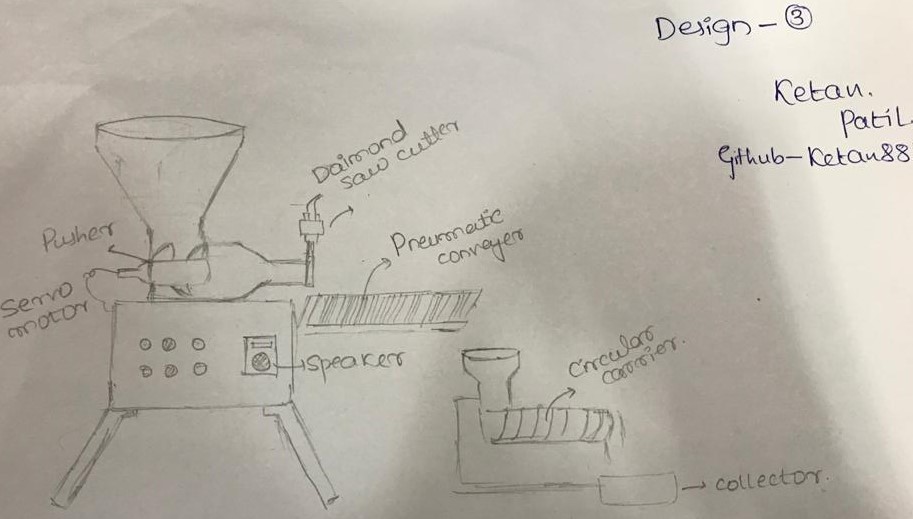 Design - ③
Ketan.
Patil.
Github-Ketan88
Daimond
saw cutter
Pusher
Pneumatic
conveyer
Servo
motor
speaker
Circular
carrier.
collector.